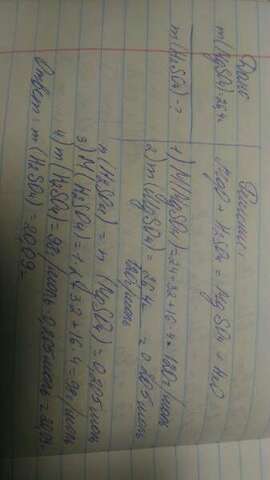 Дано
m(MgSO4)=
m(H2SO4)-?
Решение:
MgO + H2SO4 = MgSO4 + H2O
1) M(MgSO4)=24+32+16·4=120г/моль
2) m(MgSO4) =
120г/моль
= 0,205моль
n(H2SO4) = n (MgSO4) = 0,205моль
3) M(H2SO4)=1·2+32+16·4=98г/моль
4) m(H2SO4) = 98г/моль · 0,205моль = 20,09г.
Ответ: m(H2SO4) = 20,09г.